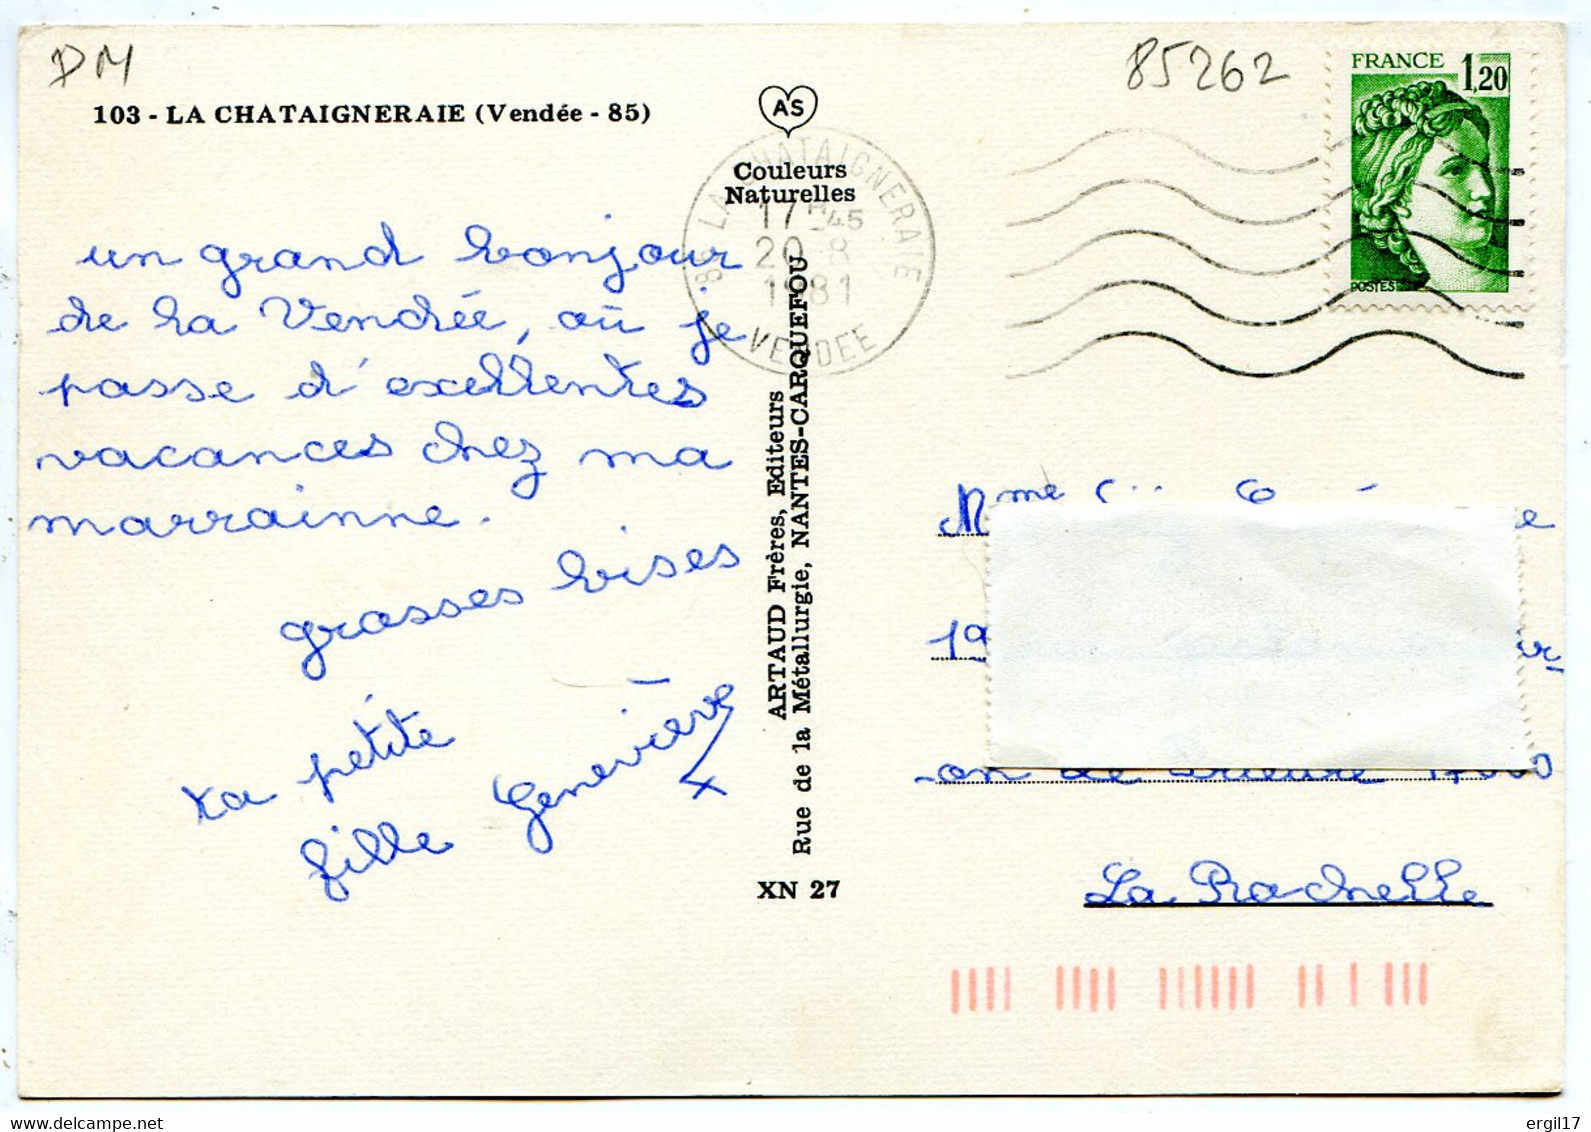 DM
85262
FRANCE 1,20
POSTES
103 - LA CHATAIGNERAIE (Vendée - 85)
AS
Couleurs
Naturelles
85 LA CHATAIGNERAIE
17H45
20-8
1981
VENDEE
un grand bonjour
de la Vendée, où je
passe d'excellentes
vacances chez ma
marrainne.
grosses bises
ta petite
fille Geneviève
ARTAUD Frères, Editeurs
Rue de la Métallurgie, NANTES-CARQUEFOU
XN 27
Mme
19
17000
La Rochelle
delcampe.net
ergil17